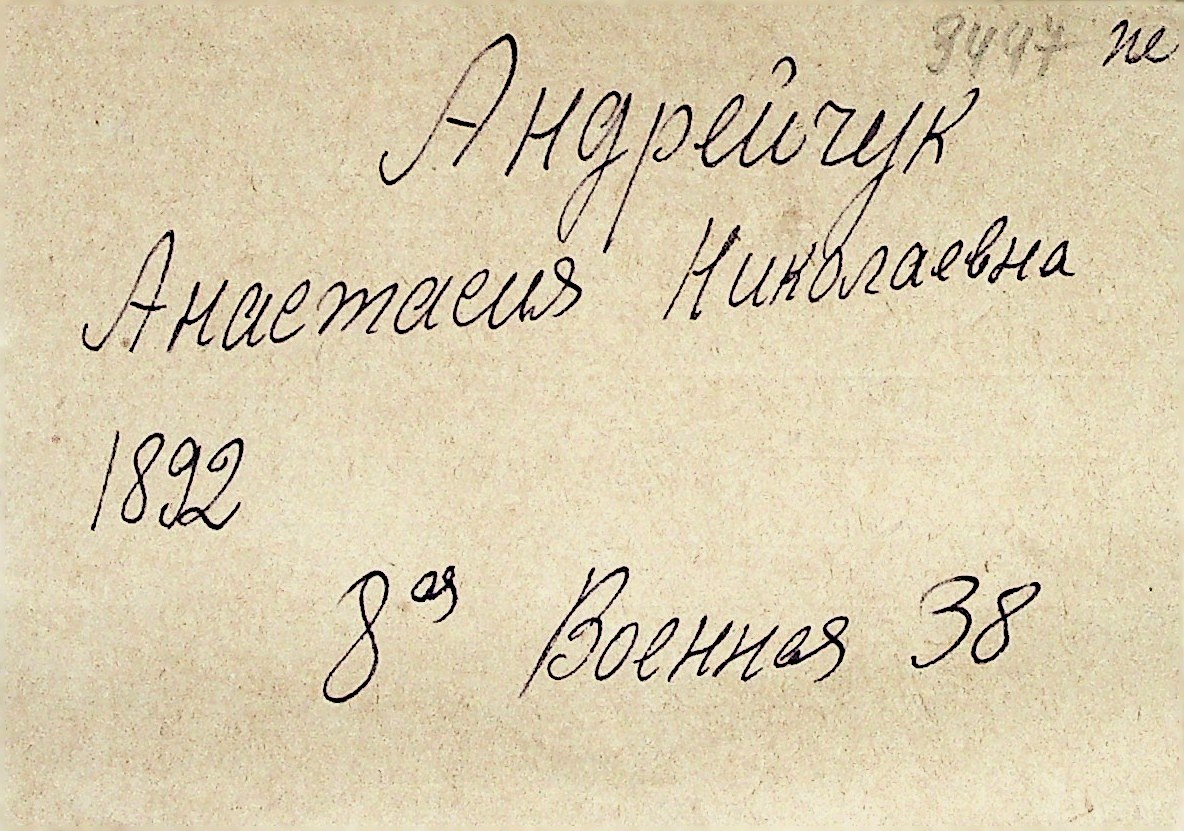 9447 пе
Андрейчук
Анастасия Николаевна
1892
8ая Военная 38